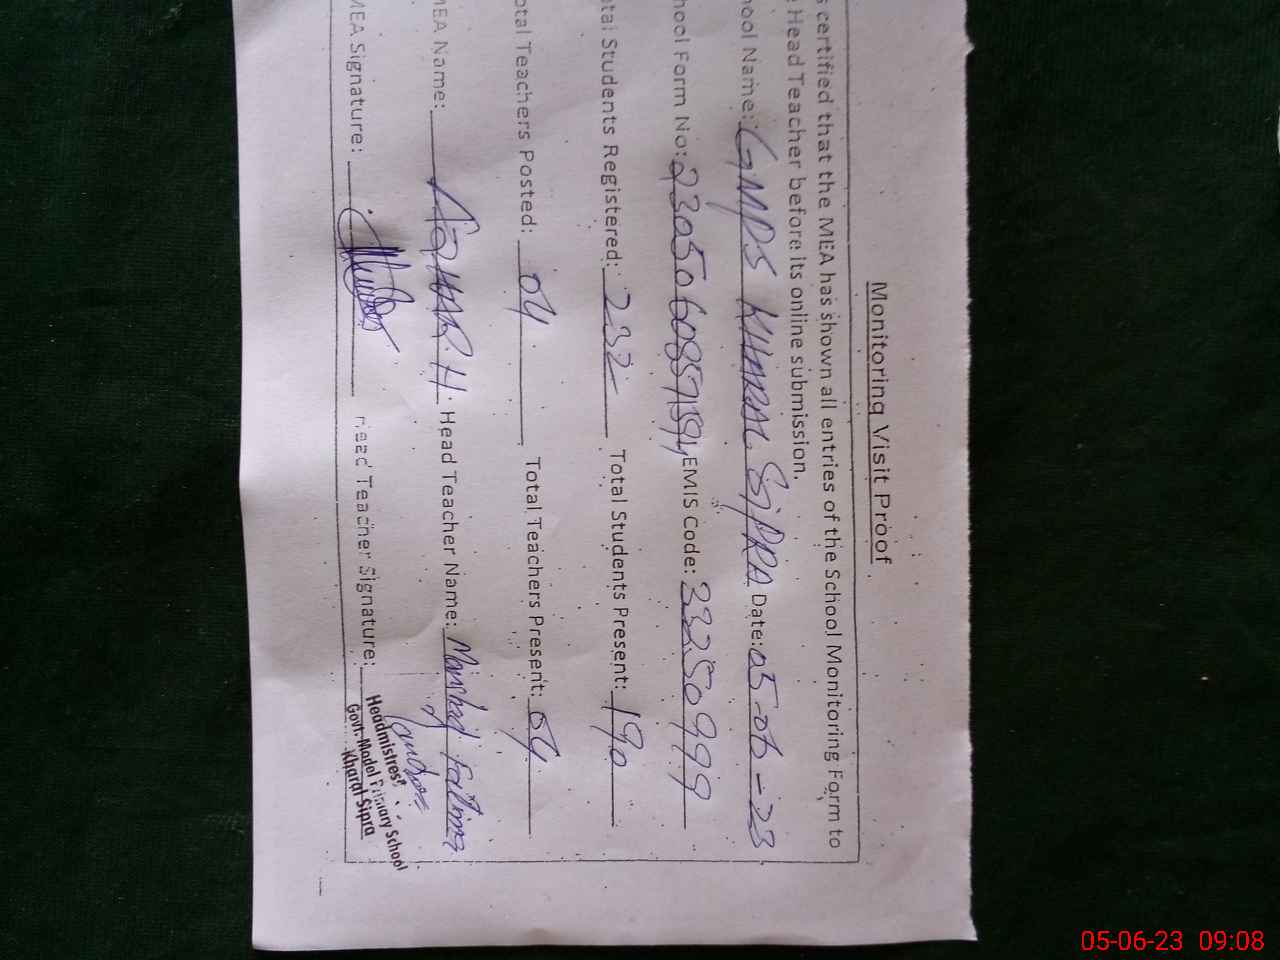 Monitoring Visit Proof
s certified that the MEA has shown all entries of the School Monitoring Form to
Head Teacher before its online submission.
hool Name: GMPS KHARAL SIPRA Date: 05-06-23
hool Form No: EMIS Code: 33250999
tal Students Registered: 232 Total Students Present: 190
otal Teachers Posted: 04 Total Teachers Present: 04
MEA Name: Head Teacher Name: Fatima
MEA Signature: Head Teacher Signature:
Headmistress
Govt. Model Primary School
Kharal Sipra
05-06-23 09:08